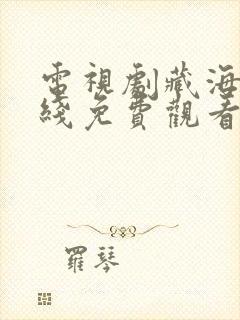 電視劇藏海
綫免費觀看
羅琴